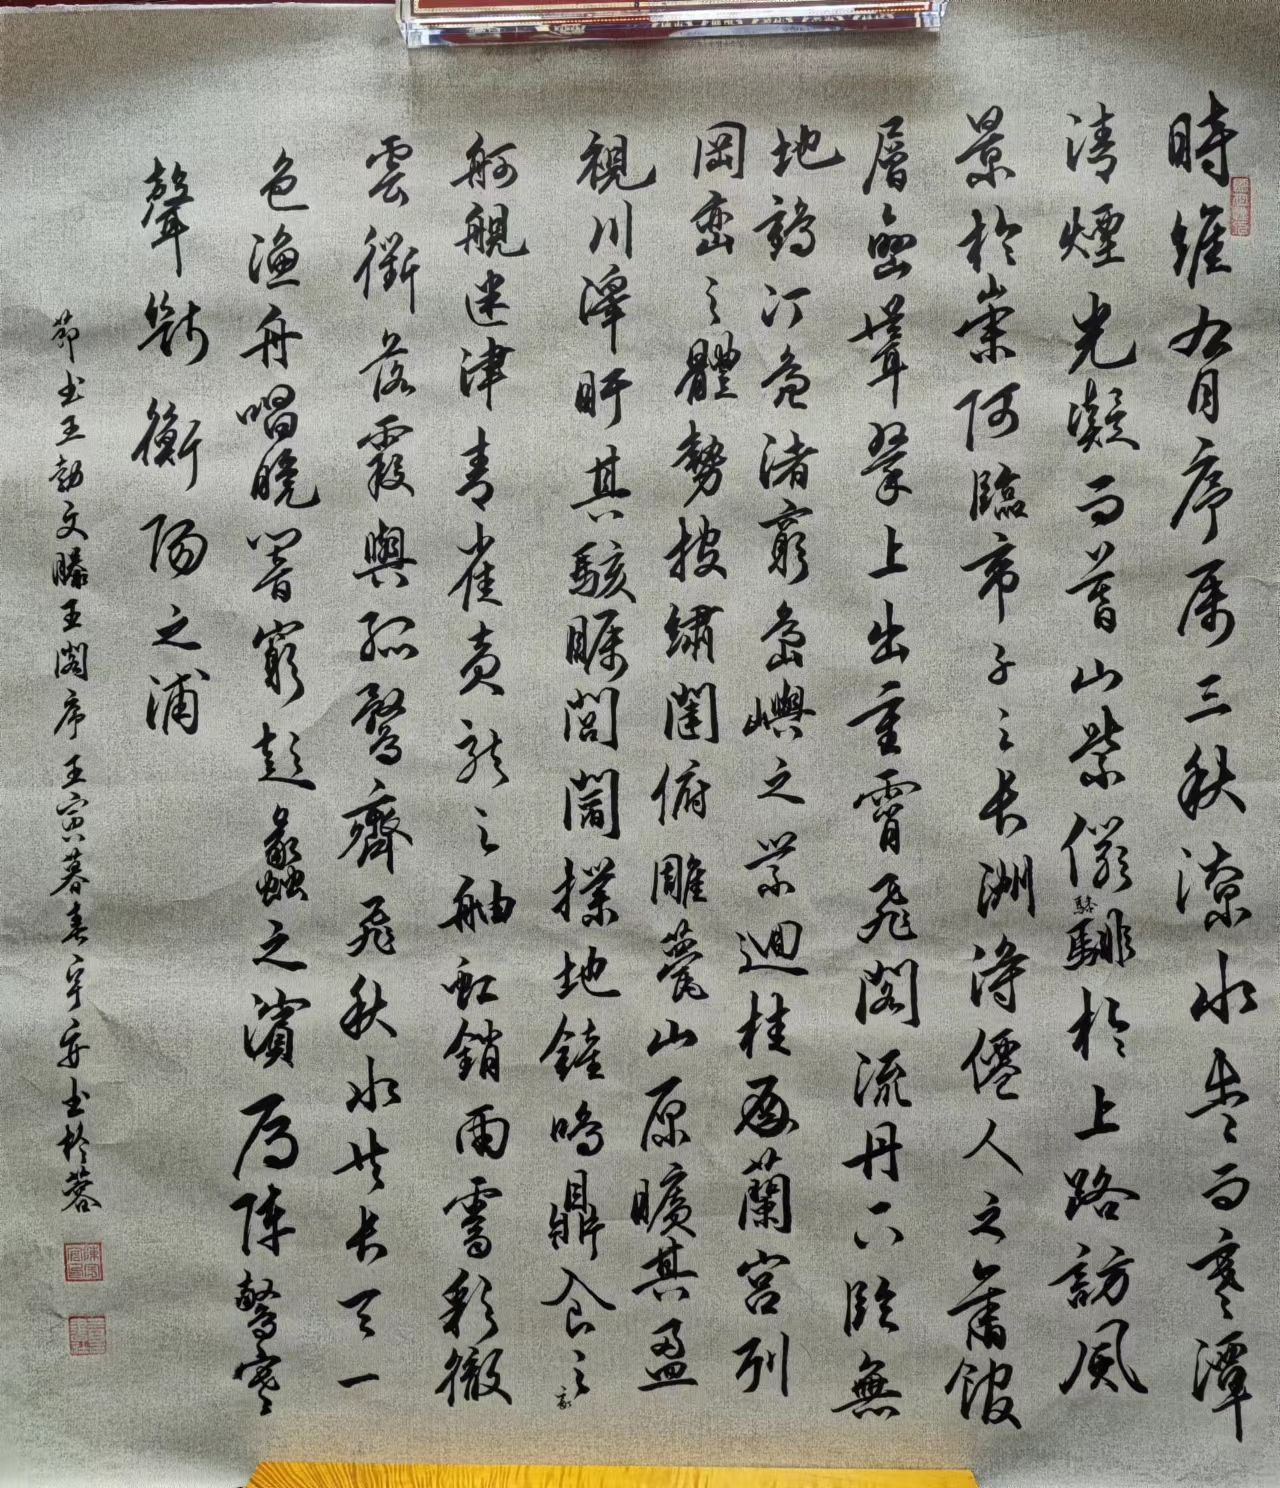 時維九月序屬三秋潦水盡而寒潭
清煙光凝而暮山紫儼驂騑於上路訪風
景於崇阿臨帝子之長洲得僊人之舊館
層巒聳翠上出重霄飛閣流丹下臨無
地鶴汀鳧渚窮島嶼之縈迴桂殿蘭宮列
岡巒之體勢披繡闥俯雕甍山原曠其盈
視川澤盱其駭矚閭閻撲地鐘鳴鼎食之家
舸艦迷津青雀黃龍之舳虹銷雨霽彩徹
雲衢落霞與孤鶩齊飛秋水共長天一
色漁舟唱晚響窮彭蠡之濱雁陣驚寒
聲斷衡陽之浦
節書王勃文滕王閣序壬寅暮春宇安書於蓉